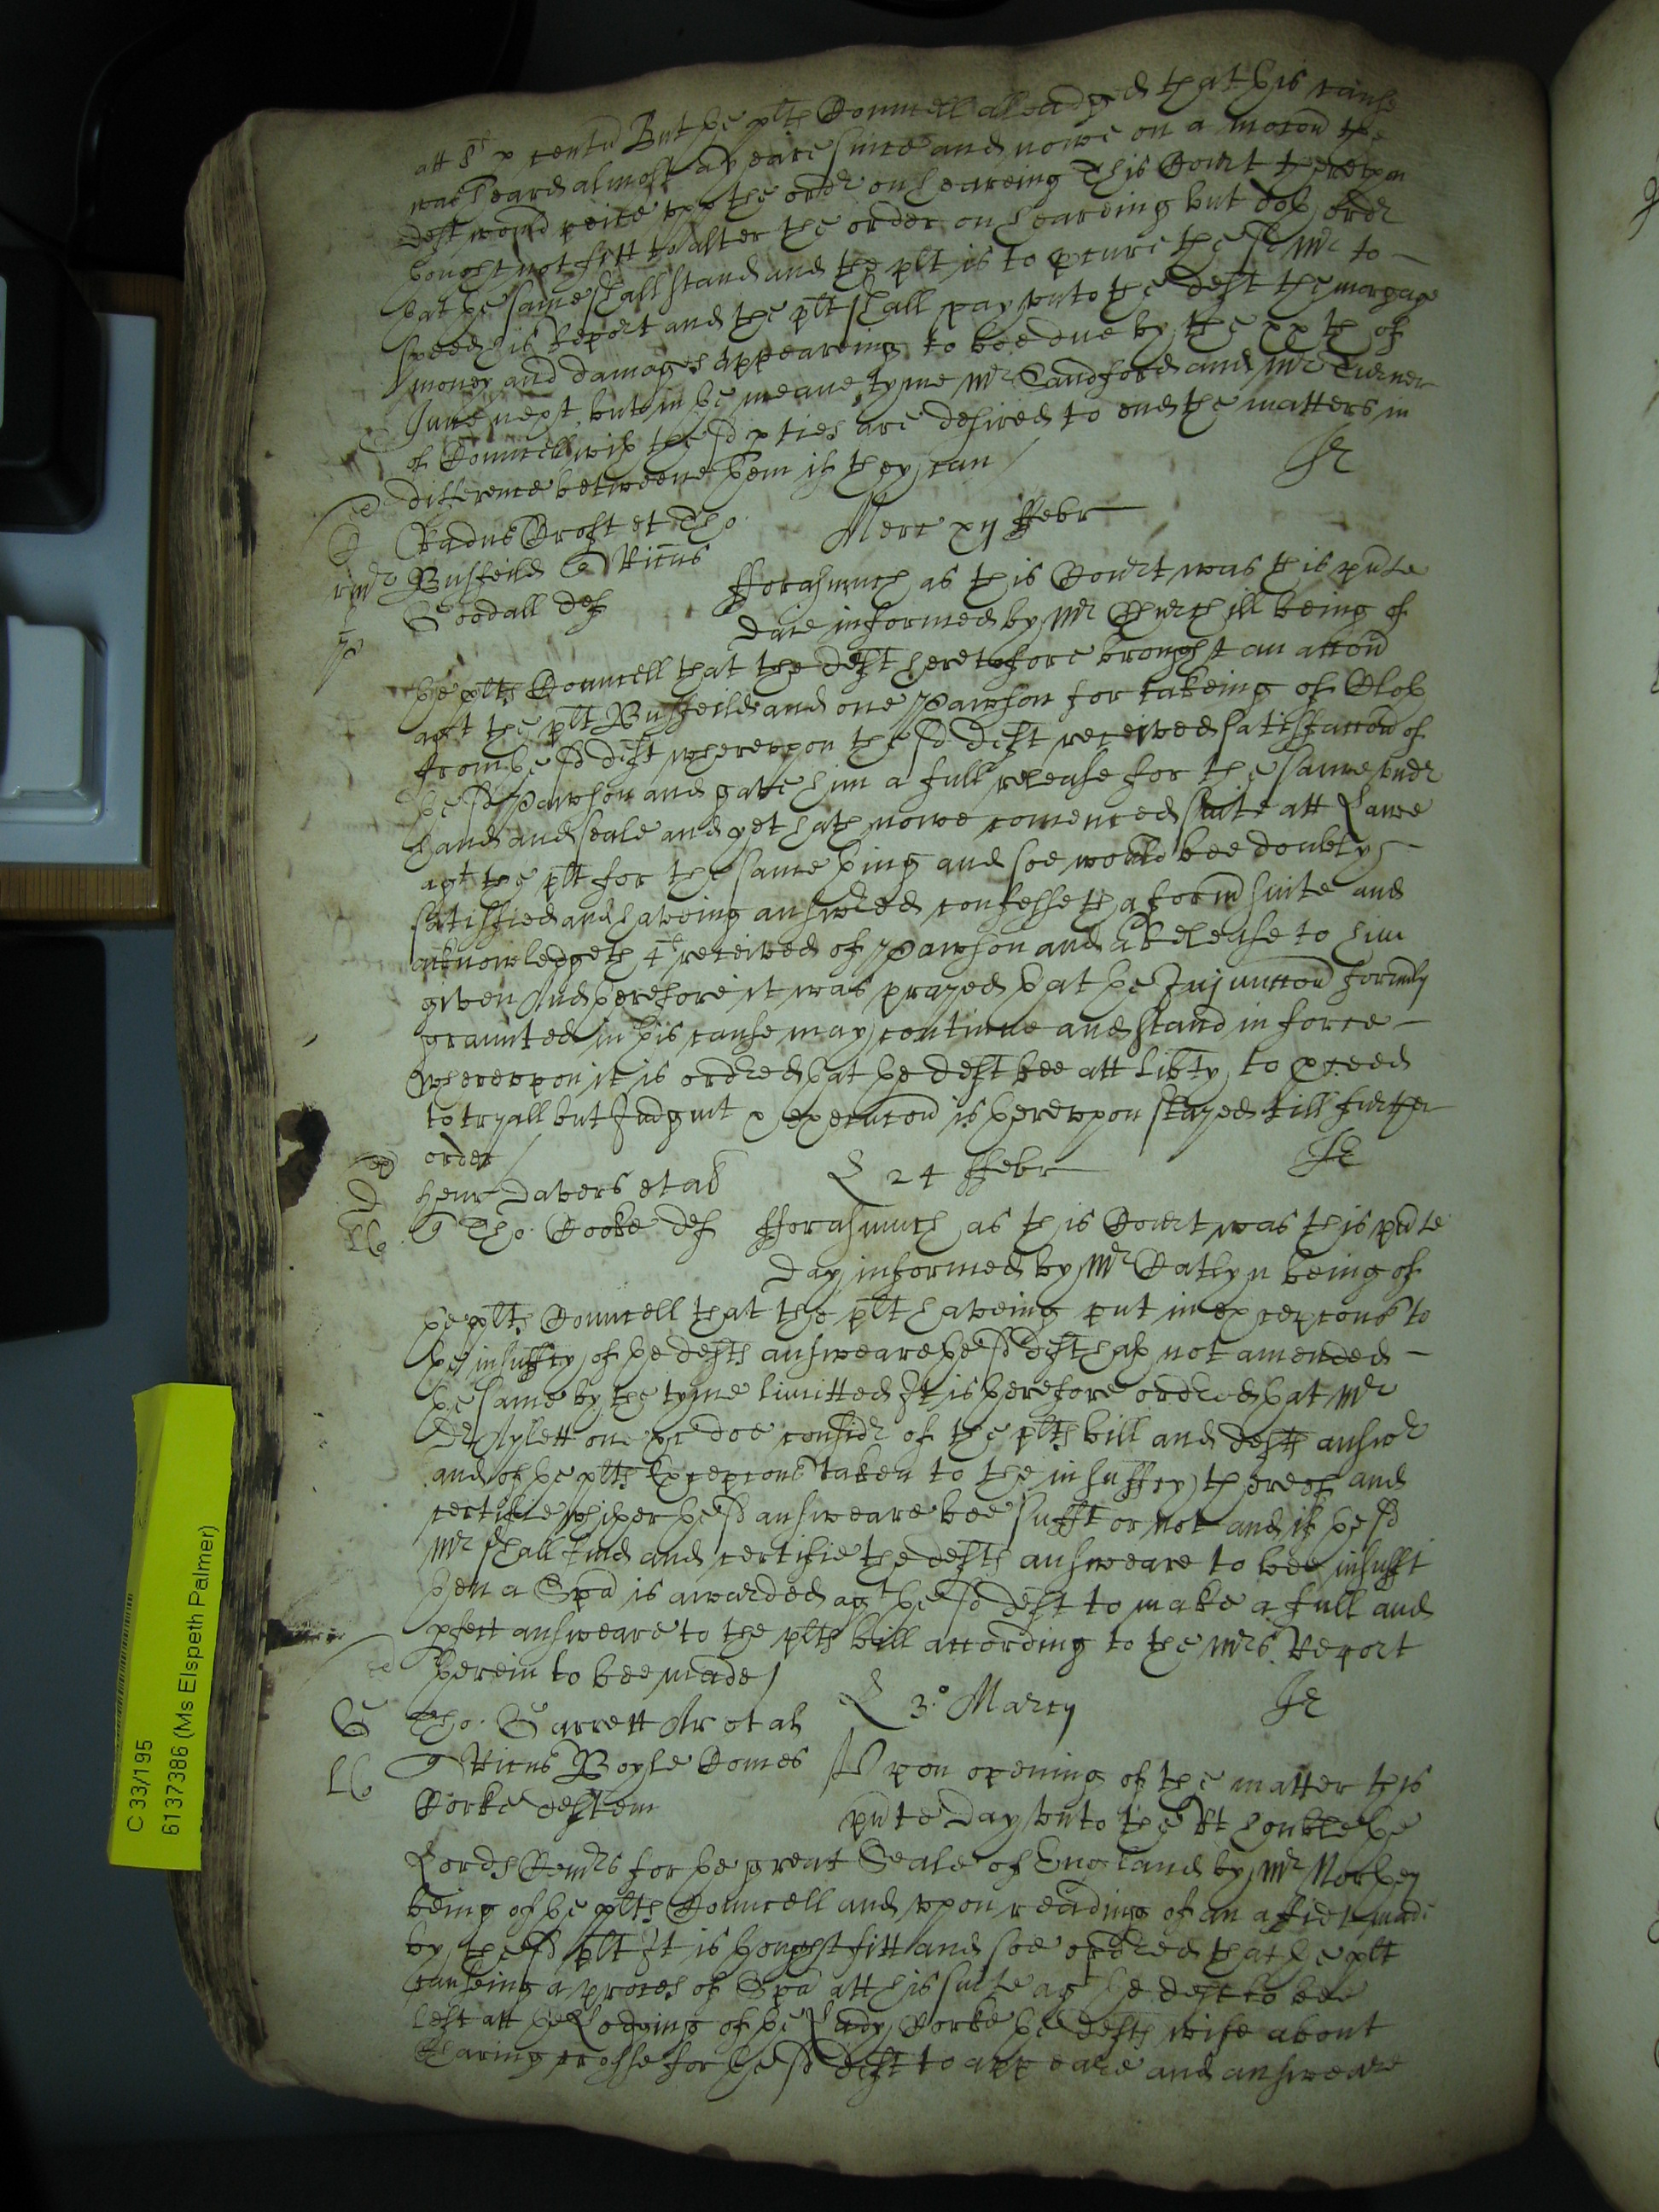 att 8l p centu But the plts Councell alleadged that this cause
was heard almost a yeare since and nowe on a mocon the
deft would the order on heareing This Court thereupon
thought not fitt to alter the order on heareing but doth order
that the same shall stand and the plt is to pcure the sd Mr to
speed his Report and the plt shall pay unto the deft the morgage
money and damages appeareing to bee due by the xxth of
June next but in the meane tyme Mr Sandford and Mr Turner
of Councell with the sd pties are desired to end the matters in
difference betweene them if they can
Radus Croft et Tho.
Merc xij ffebr
Busfeild Ricus
Goodall def
fforasmuch as this Court was this pnte
daie informed by Mr Churchill being of
the plts Councell that the deft heretofore brought an accon
agt the plt Busfeild and one Pawson for takeing of Cloth
from the sd deft whereupon the sd deft received satisfaccon of
the sd Pawson and gave him a full release for the same undr
hand and seale and yet hath nowe comenced suite att Lawe
agt the plt for the same thing and soe would bee doubly
satisfied and haveing answred confesseth a formr suite and
acknowledgeth 4l received of Pawson and a Release to him
given And therefore it was prayed that the Injunccon formly
graunted in this cause may continue and stand in force
whereupon it is ordred that the deft bee att libty to pceed
to tryall but Judgmt & execucon is thereupon stayed till further
order
Henr Davers et al
L 24 ffebr
q Tho. Cooke def
fforasmuch as this Court was this pnte
day informed by Mr Catlyn being of
the plts Councell that the plt haveing put in excepcons to
the insuffcy of the defts answeare the sd deft hath not amended
the same by the tyme limitted It is therefore ordred that Mr
Dr Aylett one &c doe considr of the plts bill and defts answr
and of the plts Excepcons taken to the insuffcy thereof and
certifie whither the sd answeare bee sufft or not and if the sd
Mr shall find and certifie the defts answeare to bee insufft
then a Spa is awarded agt the sd deft to make a full and
pfect answeare to the plts bill according to the Mrs Report
therein to bee made
Tho. Garrett Ar et al
L 3o Marcij
q Ricus Boyle Comes
Corke deftem
Upon opening of the matter this
pnte day unto the Rt honble the
Lords Comrs for the great Seale of England by Mr
being of the plts Councell and upon reading of an affidt made
by the sd plt It is thought fitt and soe ordred that the plt
causeing a proces of Spa att his suite agt the deft to bee
left att the Lodging of the Lady Corke the defts wife about
Charing crosse for the sd deft to appeare and answeare
C 33/195
6137386 (Ms Elspeth Palmer)